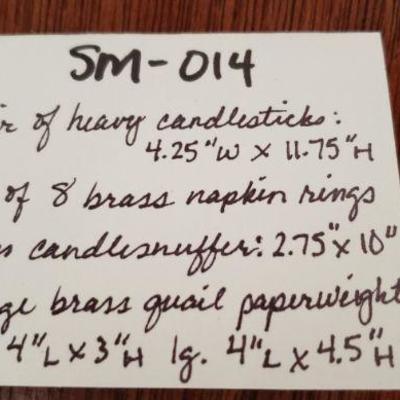 SM-014
r of heavy candlesticks:
4.25"W x 11.75"H
of 8 brass napkin rings
s candlesnuffer: 2.75"x 10"
ge brass quail paperweight
4"L x 3"H lg. 4"L x 4.5"H